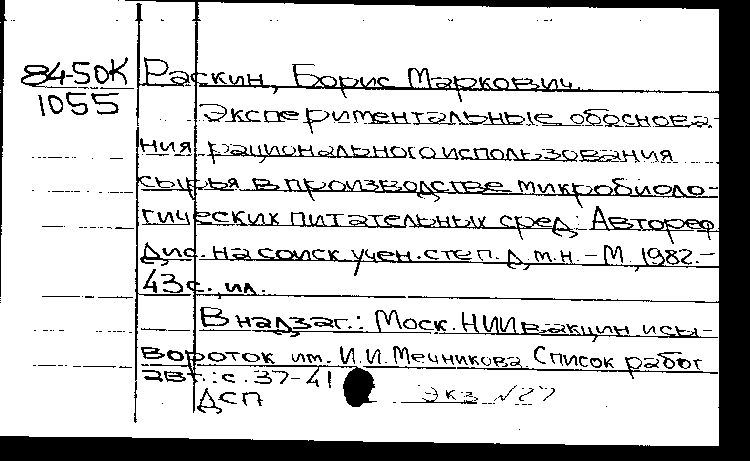 84-50К Раскин, Борис Маркович.
1055
Экспериментальные обоснова-
ния рационального использования
сырья в производстве микробиоло-
гических питательных сред: Автореф
Дис. на соиск учен. степ. д, т.н. - М, 1982.-
43с., ил.
В надзаг.: Моск. НИИ вакцин и сы-
вороток им. И.И. Мечникова. Список работ
авт.: с. 37-41
ДСП Экз №27